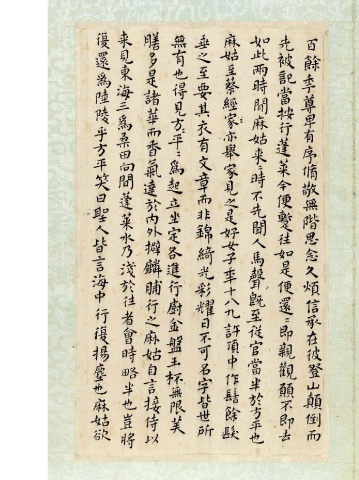 百餘年尊卑有序脩敬無階思念久煩信承在彼登山顛倒而
先被記當按行蓬萊今便蹔往如是便還還即親觀願不即去
如此兩時間麻姑來來時不先聞人馬聲既至從官當半於方平也
麻姑至蔡經家亦舉家見之是好女子年十八九許頂中作髻餘髮
垂之至要其衣有文章而非錦綺光彩耀日不可名字皆世所
無有也得見方平方平為起立坐定各進行廚金盤玉杯無限美
膳多是諸華而香氣達於內外擗麟脯行之麻姑自言接侍以
來見東海三為桑田向間蓬萊水乃淺於往者會時略半也豈將
復還為陸陵乎方平笑曰聖人皆言海中行復揚塵也麻姑欲